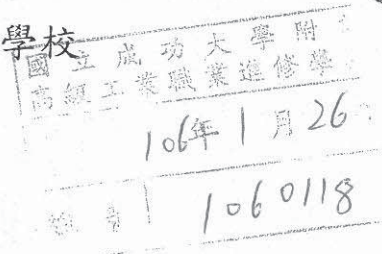 學校
國立成功大學附
高級工業職業進修學
106年1月26
1060118